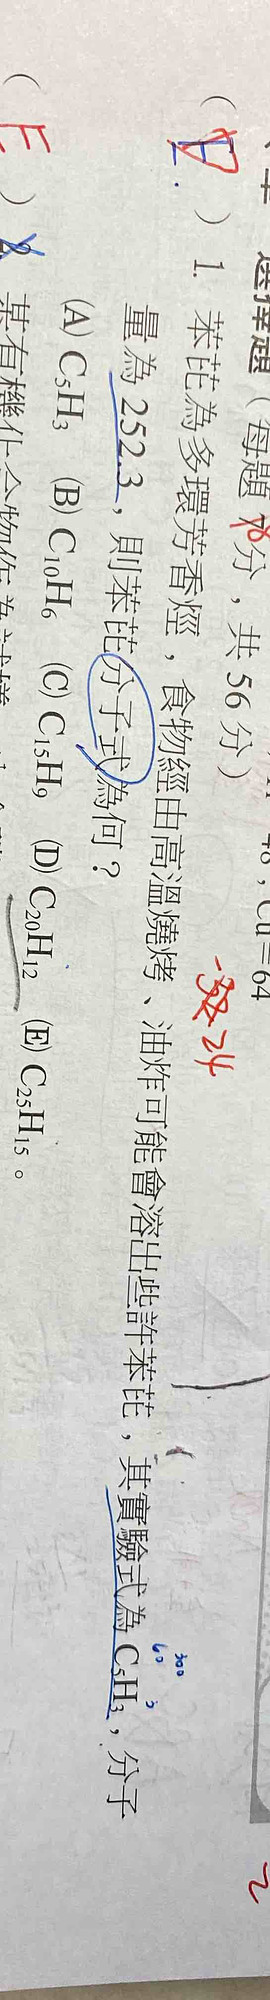 48, Cu=64
選擇題（每題 8 分，共 56 分）
-32 24
( E ) 1. 苯芘為多環芳香烴，食物經由高溫燒烤、油炸可能會溶出些許苯芘，其實驗式為 C₅H₃，分子
300
60 3
量為 252.3，則苯芘分子式為何？
(A) C₅H₃ (B) C₁₀H₆ (C) C₁₅H₉ (D) C₂₀H₁₂ (E) C₂₅H₁₅。
( E ) 2. 某有機化合物